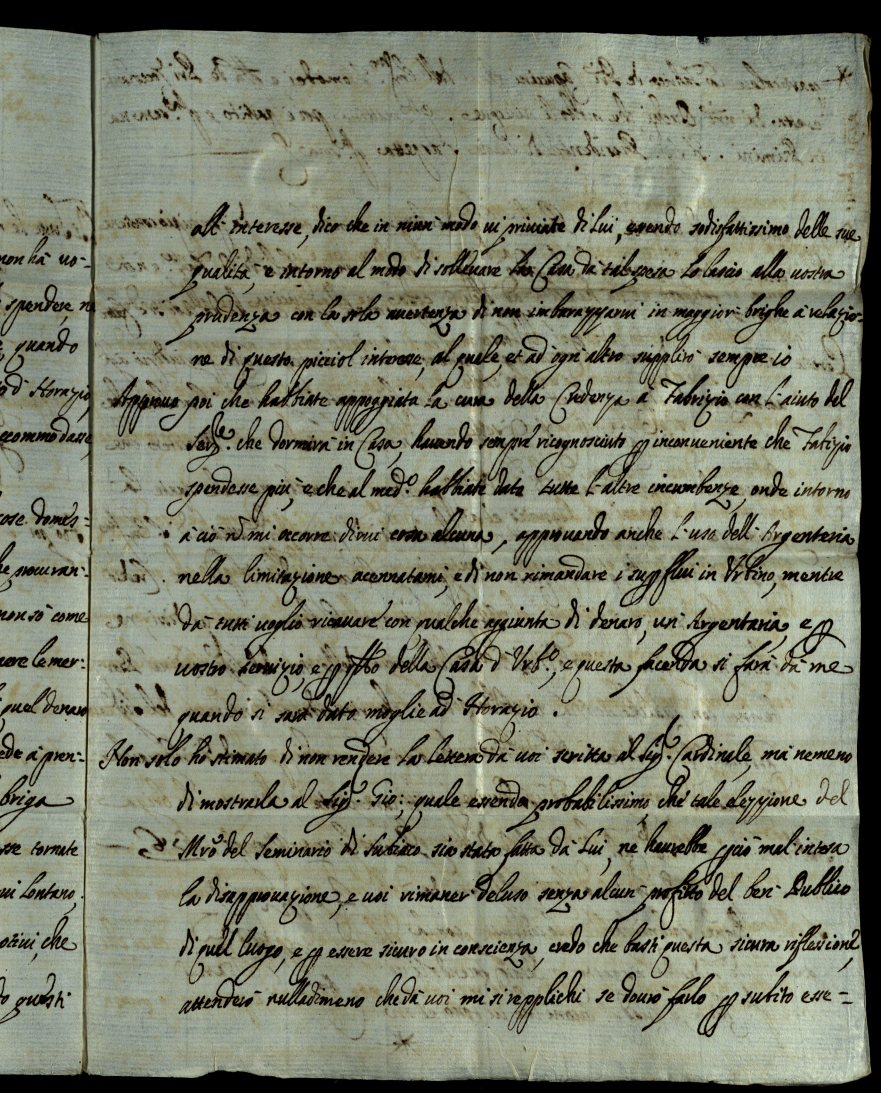 non hà uo-
spendere n
quando
d'Horazio,
accommodasse,
cose domes-
he procuran-
non sò come
nere le mer-
quel denaro
ede à pren-
briga
sse tornate
ui lontano,
che
questi
all'interesse, dico che in niun modo vi priviate di Lui, essendo sodisfattissimo delle sue
qualità, e intorno al modo di sollevare la Casa da tal spesa lo lascio alla vostra
prudenza con la sola avertenza di non imbarazzarvi in maggior brighe à relazio-
ne di questo picciol interesse, al quale, et ad ogni altro supplirò sempre io
Approvo poi che habbiate appoggiata la cura della Credenza à Fabrizio con l'aiuto del
Serv.re che dormirà in Casa, havendo sempre ricognosciuto p inconveniente che Fabizio
spendesse più, e che al med.o habbiate date tutte l'altre incumbenze, onde intorno
à ciò nõ mi occorre dirvi cosa alcuna, approvando anche l'uso dell'Argenteria
nella limitazione accennatami, e di non rimandare i supflui in Urbino, mentre
dà tutti voglio ricavare con qualche aggiunta di denaro, un'Argenteria, e p
vostro servizio, e p qllo della Casa d'Urb.o, e questa facenda si farà dà me
quando si sarà dato moglie ad Horazio.
Non solo hò stimato di non rendere la lettera dà voi scritta al Sig.r Cardinale, mà nemeno
di mostrarla al Sig.r Gio: quale essendo probabilissimo, che tale elezzione del
Mrõ del Seminario di Subiaco sia stata fatta dà Lui, ne haurebbe pciò mal intesa
la disapprovazione, e voi rimaner deluso senza alcun profitto del ben Publico
di quel luogo, e p essere sicuro in conscienza, credo che basti questa sicura riflessione,
attenderò nulladimeno che dà voi mi si repplichi se dovrò farlo p subito esse-